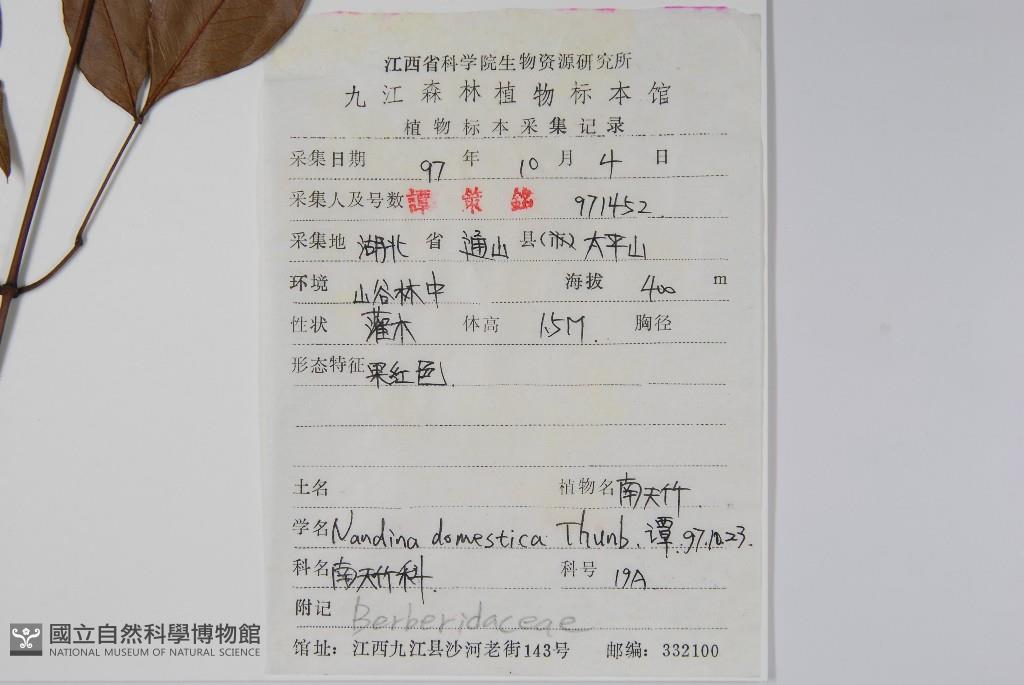 江西省科学院生物资源研究所
九江森林植物标本馆
植物标本采集记录
采集日期 97 年 10 月 4 日
采集人及号数 譚策銘 971452
采集地 湖北 省 通山 县(市) 太平山
环境 山谷林中 海拔 400 m
性状 灌木 体高 1.5M 胸径
形态特征 果红色
土名 植物名 南天竹
学名 Nandina domestica Thunb. 谭 97.10.23.
科名 南天竹科 科号 19A
附记 Berberidaceae
馆址：江西九江县沙河老街143号 邮编：332100
國立自然科學博物館
NATIONAL MUSEUM OF NATURAL SCIENCE